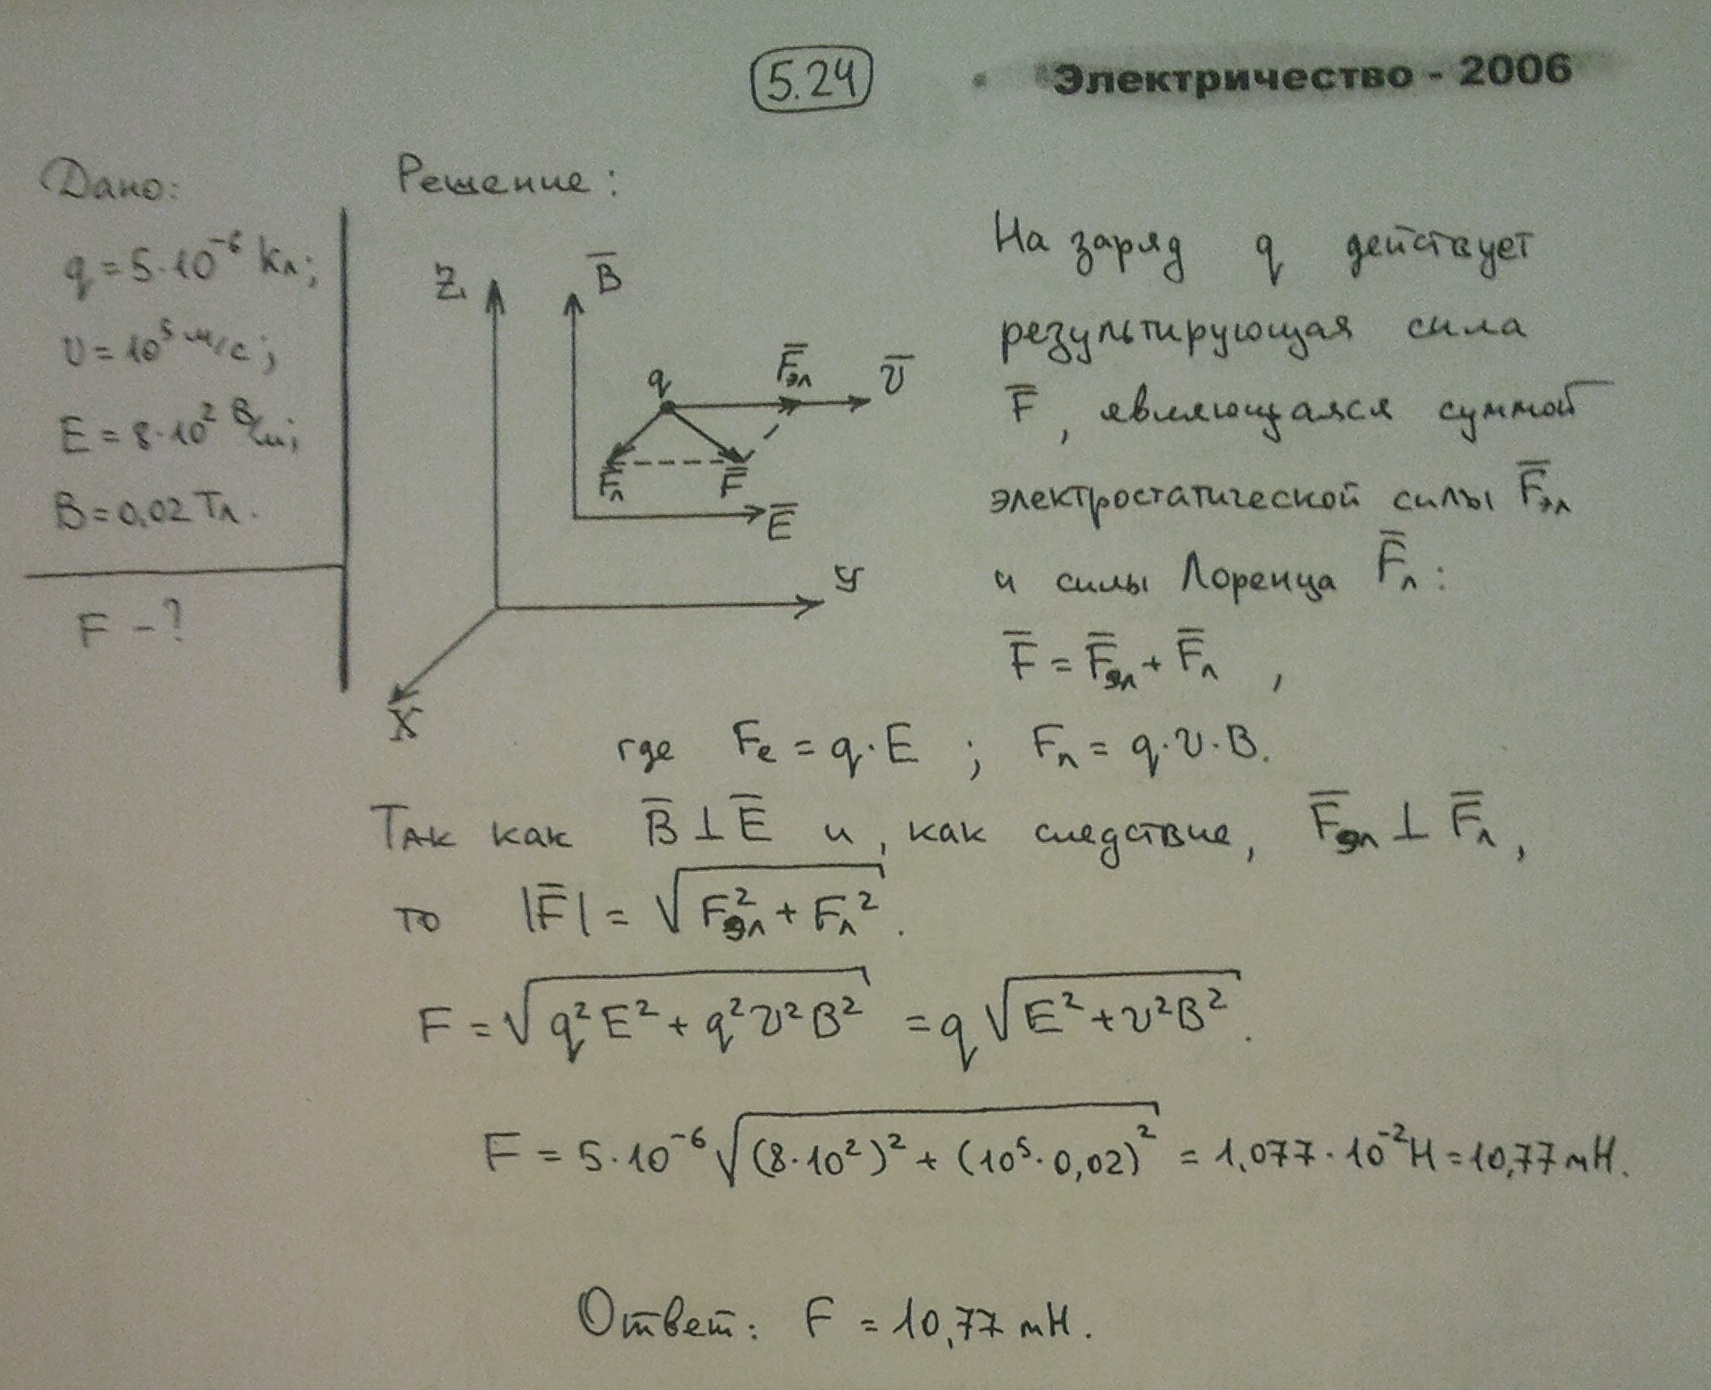 5.24
Электричество - 2006
Дано:
q = 5·10⁻⁶ Кл;
υ = 10⁵ м/с;
E = 8·10² В/м;
B = 0,02 Тл.
F - ?
Решение:
Z
B̅
q
F̅эл
υ̅
F̅л
F̅
E̅
У
X
На заряд q действует
результирующая сила
F̅, являющаяся суммой
электростатической силы F̅эл
и силы Лоренца F̅л:
F̅ = F̅эл + F̅л ,
где Fe = q·E ; Fл = q·υ·B.
Так как B̅ ⊥ E̅ и, как следствие, F̅эл ⊥ F̅л,
то |F̅| = √(Fэл² + Fл²).
F = √(q²E² + q²υ²B²) = q √(E² + υ²B²).
F = 5·10⁻⁶ √((8·10²)² + (10⁵·0,02)²) = 1,077·10⁻² Н = 10,77 мН.
Ответ: F = 10,77 мН.